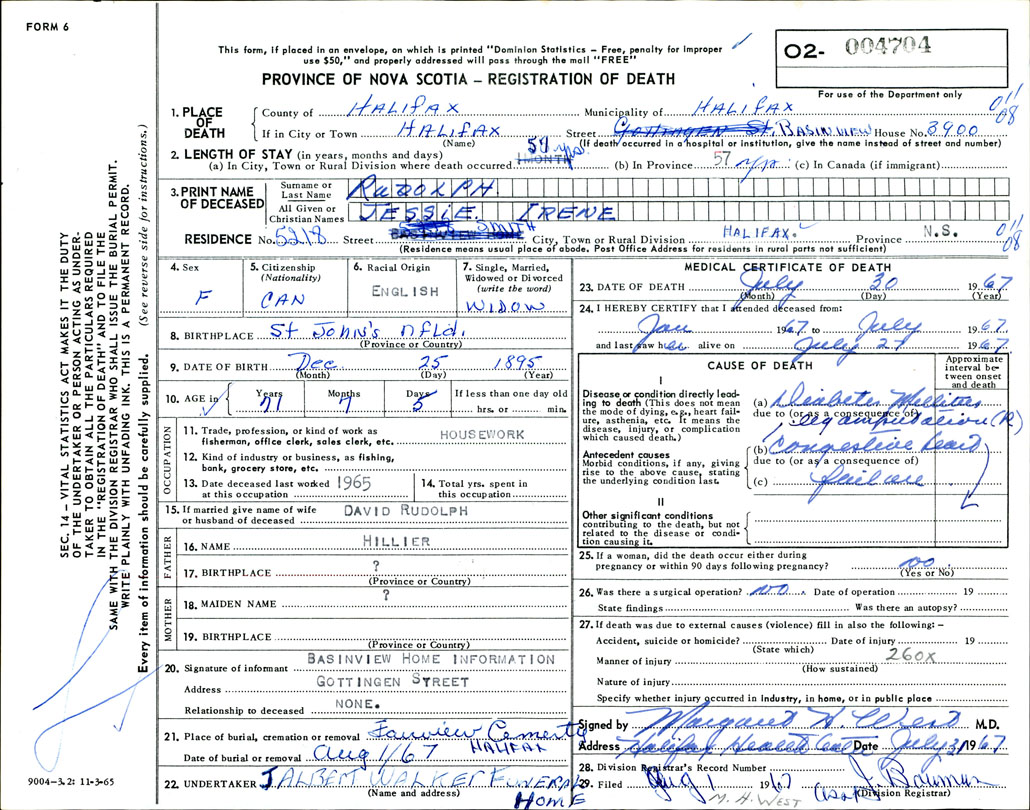 FORM 6
This form, if placed in an envelope, on which is printed "Dominion Statistics – Free, penalty for improper
use $50," and properly addressed will pass through the mail "FREE"
PROVINCE OF NOVA SCOTIA – REGISTRATION OF DEATH
02- 004704
For use of the Department only
011
08
SEC. 14 – VITAL STATISTICS ACT MAKES IT THE DUTY
OF THE UNDERTAKER OR PERSON ACTING AS UNDER-
TAKER TO OBTAIN ALL THE PARTICULARS REQUIRED
IN THE "REGISTRATION OF DEATH" AND TO FILE THE
SAME WITH THE DIVISION REGISTRAR WHO SHALL ISSUE THE BURIAL PERMIT.
WRITE PLAINLY WITH UNFADING INK. THIS IS A PERMANENT RECORD.
Every item of information should be carefully supplied. (See reverse side for instructions.)
1. PLACE OF DEATH
County of HALIFAX Municipality of HALIFAX
If in City or Town HALIFAX Street GOTTINGEN ST. BASINVIEW House No. 3900
(Name) (If death occurred in a hospital or institution, give the name instead of street and number)
2. LENGTH OF STAY (in years, months and days)
(a) In City, Town or Rural Division where death occurred 1 MONTH 57 yrs. (b) In Province 57 yrs. (c) In Canada (if immigrant)
3. PRINT NAME OF DECEASED
Surname or Last Name RUDOLPH
All Given or Christian Names JESSIE IRENE
RESIDENCE No. 5218 Street SMITH City, Town or Rural Division HALIFAX. Province N.S.
011
08
(Residence means usual place of abode. Post Office Address for residents in rural parts not sufficient)
4. Sex F
5. Citizenship (Nationality) CAN
6. Racial Origin ENGLISH
7. Single, Married, Widowed or Divorced (write the word) WIDOW
8. BIRTHPLACE St John's nfld.
(Province or Country)
9. DATE OF BIRTH Dec 25 1895
(Month) (Day) (Year)
10. AGE in Years 71 Months 7 Days 5 If less than one day old hrs. or min.
OCCUPATION
11. Trade, profession, or kind of work as fisherman, office clerk, sales clerk, etc. HOUSEWORK
12. Kind of industry or business, as fishing, bank, grocery store, etc.
13. Date deceased last worked at this occupation 1965
14. Total yrs. spent in this occupation
15. If married give name of wife or husband of deceased DAVID RUDOLPH
FATHER
16. NAME HILLIER
17. BIRTHPLACE ?
(Province or Country)
MOTHER
18. MAIDEN NAME ?
19. BIRTHPLACE
(Province or Country)
20. Signature of informant BASINVIEW HOME INFORMATION
Address GOTTINGEN STREET
Relationship to deceased NONE.
21. Place of burial, cremation or removal Fairview Cemerty
HALIFAX
Date of burial or removal Aug 1/67
22. UNDERTAKER J ALBERT WALKER FUNERAL HOME
(Name and address)
9004-3.2: 11-3-65
MEDICAL CERTIFICATE OF DEATH
23. DATE OF DEATH July 30 1967
(Month) (Day) (Year)
24. I HEREBY CERTIFY that I attended deceased from:
Jan 1967 to July 1967
and last saw her alive on July 27 1967
CAUSE OF DEATH
Approximate interval between onset and death
I
Disease or condition directly leading to death (This does not mean the mode of dying, e.g., heart failure, asthenia, etc. It means the disease, injury, or complication which caused death.)
(a) Diabetes Mellitus
due to (or as a consequence of)
, leg amputation (R)
Antecedent causes
Morbid conditions, if any, giving rise to the above cause, stating the underlying condition last.
(b) Congestive heart
due to (or as a consequence of)
(c) failure
II
Other significant conditions
contributing to the death, but not related to the disease or condition causing it.
25. If a woman, did the death occur either during pregnancy or within 90 days following pregnancy? no
(Yes or No)
26. Was there a surgical operation? no Date of operation 19
State findings Was there an autopsy?
27. If death was due to external causes (violence) fill in also the following: –
Accident, suicide or homicide? Date of injury 19
(State which)
Manner of injury 260X
(How sustained)
Nature of injury
Specify whether injury occurred in industry, in home, or in public place
Signed by Margaret H. West M.D.
Address Halifax Health Centre Date July 31 1967
28. Division Registrar's Record Number
29. Filed Aug 1 1967
(Division Registrar)
M. H. WEST